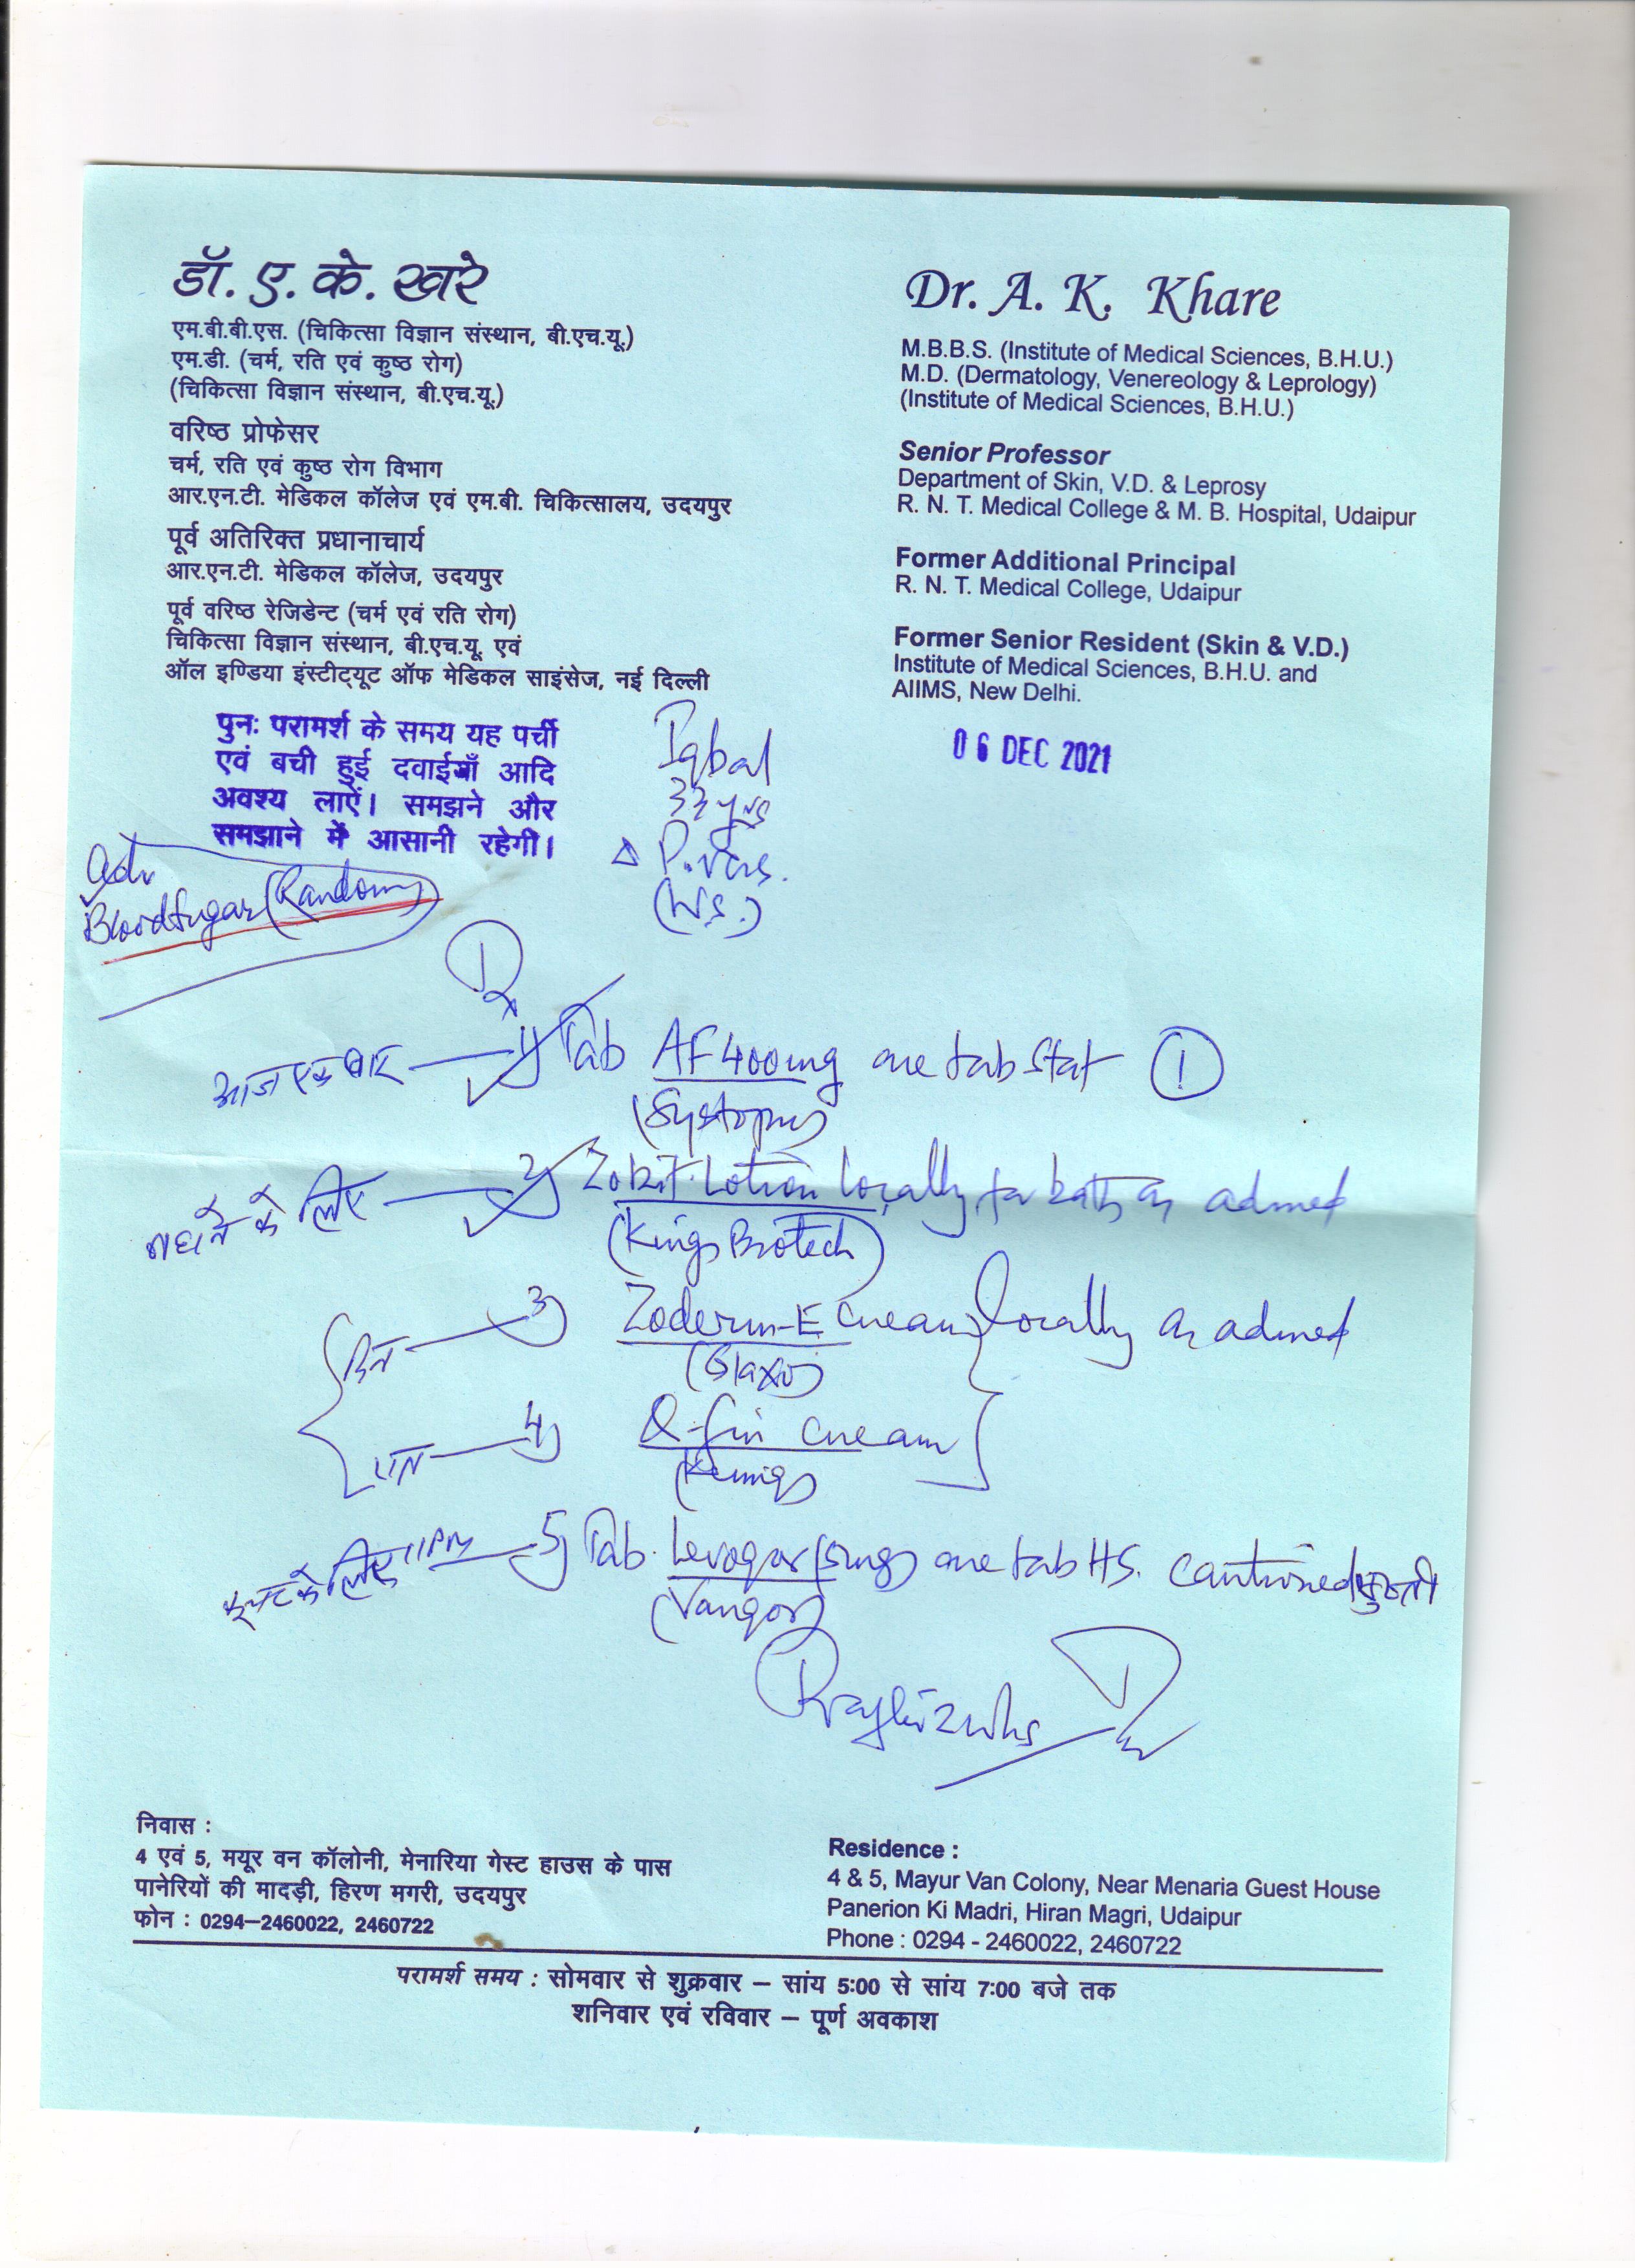 डॉ. ए. के. खरे
एम.बी.बी.एस. (चिकित्सा विज्ञान संस्थान, बी.एच.यू.)
एम.डी. (चर्म, रति एवं कुष्ठ रोग)
(चिकित्सा विज्ञान संस्थान, बी.एच.यू.)
वरिष्ठ प्रोफेसर
चर्म, रति एवं कुष्ठ रोग विभाग
आर.एन.टी. मेडिकल कॉलेज एवं एम.बी. चिकित्सालय, उदयपुर
पूर्व अतिरिक्त प्रधानाचार्य
आर.एन.टी. मेडिकल कॉलेज, उदयपुर
पूर्व वरिष्ठ रेजिडेन्ट (चर्म एवं रति रोग)
चिकित्सा विज्ञान संस्थान, बी.एच.यू. एवं
ऑल इण्डिया इंस्टीट्यूट ऑफ मेडिकल साइंसेज, नई दिल्ली
Dr. A. K. Khare
M.B.B.S. (Institute of Medical Sciences, B.H.U.)
M.D. (Dermatology, Venereology & Leprology)
(Institute of Medical Sciences, B.H.U.)
Senior Professor
Department of Skin, V.D. & Leprosy
R. N. T. Medical College & M. B. Hospital, Udaipur
Former Additional Principal
R. N. T. Medical College, Udaipur
Former Senior Resident (Skin & V.D.)
Institute of Medical Sciences, B.H.U. and
AIIMS, New Delhi.
पुनः परामर्श के समय यह पर्ची
एवं बची हुई दवाईयाँ आदि
अवश्य लाऐं। समझने और
समझाने में आसानी रहेगी।
Iqbal
33 yrs
Δ P. Vers.
(W.S.)
06 DEC 2021
Adv
Blood Sugar (Random)
आज एक बार 1) Tab AF 400mg one tab Stat 1
के लिए 2) Lotion locally for bath as advised
(Kings Biotech)
दिन 3) Zoderm-E Cream locally as advised
(Glaxo)
रात 4) Q-fin cream
5) Tab. (5mg) one tab HS. Cautioned
निवास :
4 एवं 5, मयूर वन कॉलोनी, मेनारिया गेस्ट हाउस के पास
पानेरियों की मादड़ी, हिरण मगरी, उदयपुर
फोन : 0294–2460022, 2460722
Residence :
4 & 5, Mayur Van Colony, Near Menaria Guest House
Panerion Ki Madri, Hiran Magri, Udaipur
Phone : 0294 - 2460022, 2460722
परामर्श समय : सोमवार से शुक्रवार – सांय 5:00 से सांय 7:00 बजे तक
शनिवार एवं रविवार – पूर्ण अवकाश